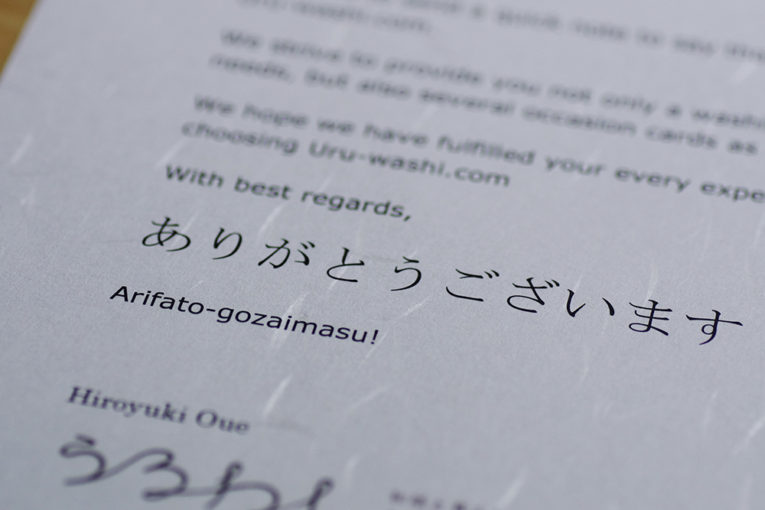 We strive to provide you not only a washi
needs, but also several occasion cards as
We hope we have fulfilled your every expe
choosing Uru-washi.com
With best regards,
ありがとうございます
Arifato-gozaimasu!
Hiroyuki Oue
うるわし